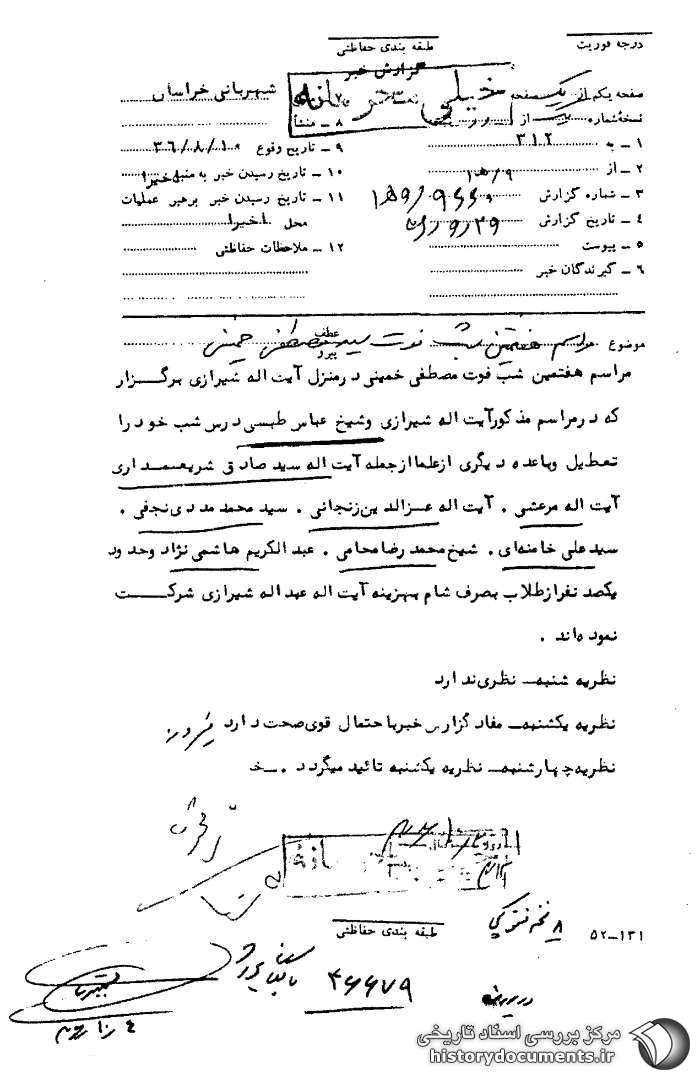 درجه فوریت
طبقه بندی حفاظتی
گزارش خبر
خیلی محرمانه
شهربانی خراسان
صفحه یکم از یک صفحه
نسخه شماره از
۱ ـ به ۳۱۲
۲ ـ از ۹ﻫ۱
۳ ـ شماره گزارش
۴ ـ تاریخ گزارش
۵ ـ پیوست
۶ ـ گیرندگان خبر
۸ ـ منشأ
۹ ـ تاریخ وقوع ۳۶/۸/۱۰
۱۰ ـ تاریخ رسیدن خبر به منبع اخیرا
۱۱ ـ تاریخ رسیدن خبر برهبر عملیات
محل اخیرا
۱۲ ـ ملاحظات حفاظتی
عطف
پیرو
موضوع مراسم هفتمین شب فوت سید مصطفی خمینی
مراسم هفتمین شب فوت مصطفی خمینی درمنزل آیت اله شیرازی برگزار
که درمراسم مذکورآیت اله شیرازی وشیخ عباس طبسی درس شب خود را
تعطیل وباعده دیگری ازعلماازجمله آیت اله سید صادق شریعتمداری
آیت اله مرعشی . آیت اله عزالدین زنجانی . سید محمد مددی نجفی .
سید علی خامنه‌ای . شیخ محمد رضا محامی . عبد الکریم هاشمی نژاد وحدود
یکصد نفرازطلاب بصرف شام بهزینه آیت اله عبد اله شیرازی شرکت
نموده‌اند .
نظریه شنبه ـ نظری ندارد
نظریه یکشنبه ـ مفاد گزارش خبرباحتمال قوی صحت دارد
نظریه چهارشنبه ـ نظریه یکشنبه تائید میگردد . ـ خ
۵۲ـ۱۳۱
طبقه بندی حفاظتی
مرکز بررسی اسناد تاریخی
historydocuments.ir